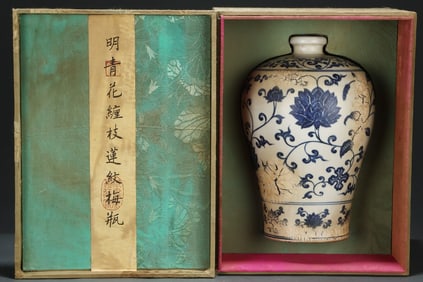 明青花纏枝蓮紋梅瓶